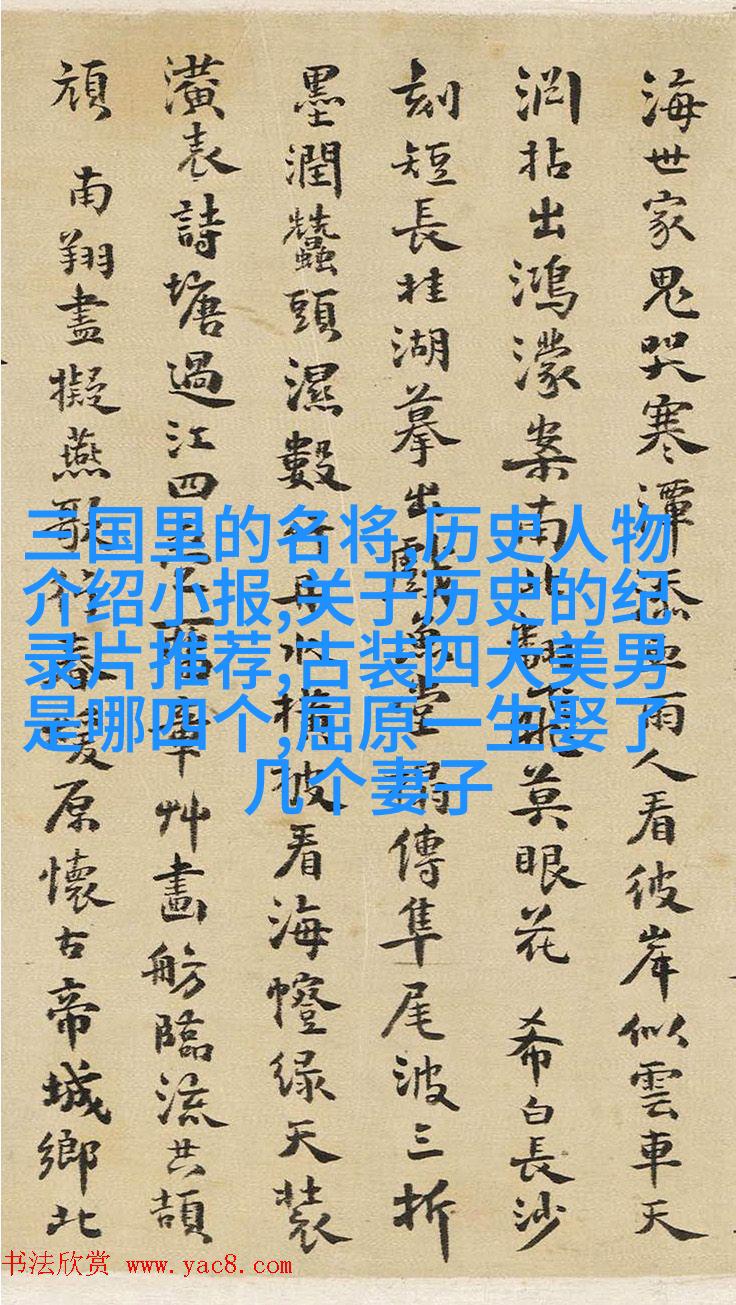 海世家鬼哭寒潭添雨人看彼岸似雲車天
淵拈出鴻濛案南北翻飛莫眼花 希白長沙
刻短長桂湖摹出戲魚堂弱傳隼尾波三折
墨潤蠶頭濕數橫披看海幢綠天裝
潢表詩塘過江四華艸畫舫臨流共頡
頏 南翔盡擬燕歌春暖原懷古帝城鄉北
三国里的名将,历史人物
介绍小报,关于历史的纪
录片推荐,古装四大美男
是哪四个,屈原一生娶了
几个妻子
书法欣赏 www.yac8.com